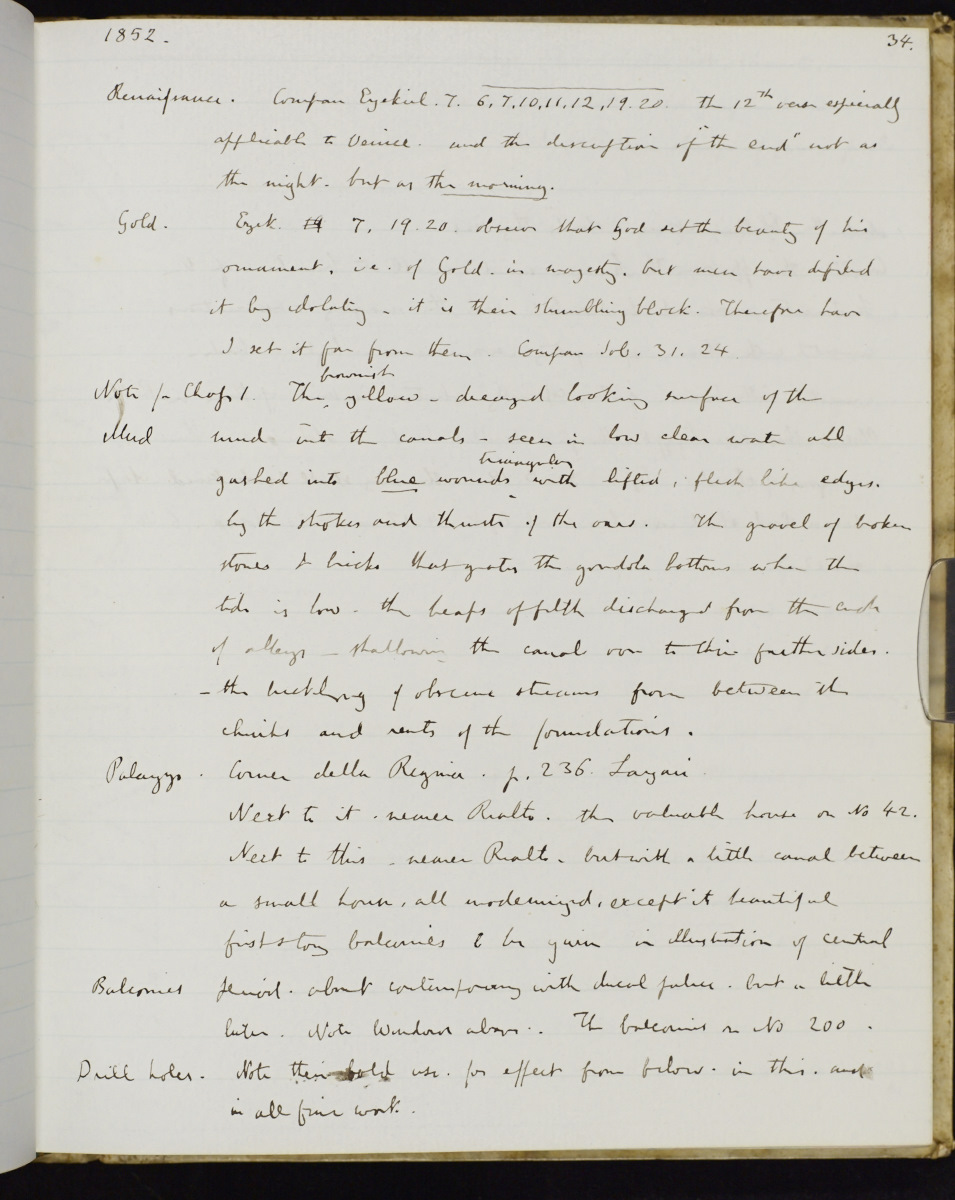 1852.
34.
Renaissance. Compare Ezekiel. 7. 6, 7, 10, 11, 12, 19. 20. The 12th verse especially
applicable to Venice. and the description of "the end" not as
the night. but as the morning.
Gold. Ezek. 19 7, 19. 20. observe that God set the beauty of his
ornament, i.e. of Gold. in majesty. but men have defiled
it by idolatry - it is their stumbling block. Therefore have
I set it far from them. Compare Job. 31. 24
brownish
Note for Chap 1. The yellow - decayed looking surface of the
Mud mud in the canals - seen in low clear water all
triangular
gashed into blue wounds with lifted, flesh like edges.
by the strokes and thrusts of the oars. The gravel of broken
stones & bricks that grates the gondola bottoms when the
tide is low - the heaps of filth discharged from the ends
of alleys - shallowing the canal over to their further sides.
- the trickling of obscene streams from between the
chinks and rents of the foundations.
Palazzo. Corner della Regina. p. 236. Lazari
Next to it. nearer Rialto. the valuable house on No 42.
Next to this - nearer Rialto - but with a little canal between
a small house, all modernized, except its beautiful
first story balconies to be given in illustration of central
Balconies period. about contemporary with ducal palace. but a little
later. Note Windows above.. The balconies in No 200.
Drill holes. Note their bold use. for effect from below. in this. and
in all fine work.